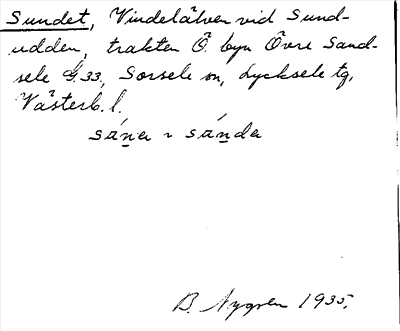 Sundet, Vindelälven vid Sund-
udden, trakten Ö. byn Övre Sand-
sele G.33, Sorsele sn, Lycksele tg,
Västerb. l.
B. Nygren 1935.